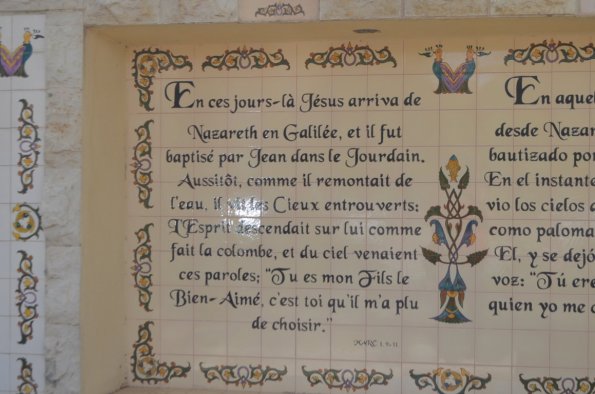 En ces jours-là Jésus arriva de
Nazareth en Galilée, et il fut
baptisé par Jean dans le Jourdain.
Aussitôt, comme il remontait de
l'eau, il vit les Cieux entrouverts:
L'Esprit descendait sur lui comme
fait la colombe, et du ciel venaient
ces paroles; "Tu es mon Fils le
Bien-Aimé, c'est toi qu'il m'a plu
de choisir."
MARC. 1, 9-11
En aquel
desde Nazar
bautizado por
En el instante
vio los cielos a
como paloma
El, y se dejó
voz: "Tú ere
quien yo me c